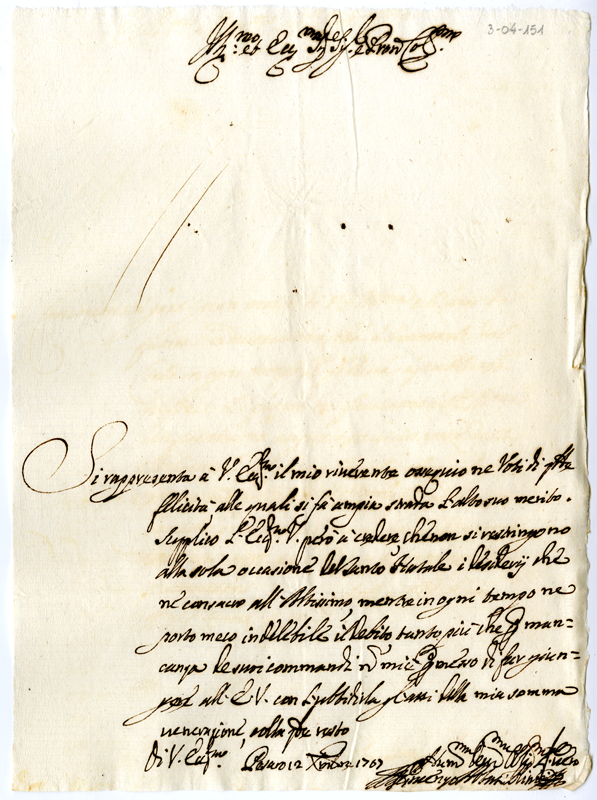 3-04-151
Ill.mo et Ecc.mo Sig. Sig. e Pron Col.mo
Si rappresenta à V. Ecc. il mio riverente ossequio ne Voti di
felicità alle quali si fà ampia strada l'alto suo merito.
Supplico l'Ecc. V. però à credere che non si restringono
alla sola occasione del Santo Natale i desiderij che
ne consacro all'Altissimo, mentre in ogni tempo ne
porto meco indelebile il debito tanto più che man=
canza de suoi commandi di far giun=
gere all'E. V. con della mia somma
venerazione, colla resto
Di V. Ecc. Pesaro 12 1707